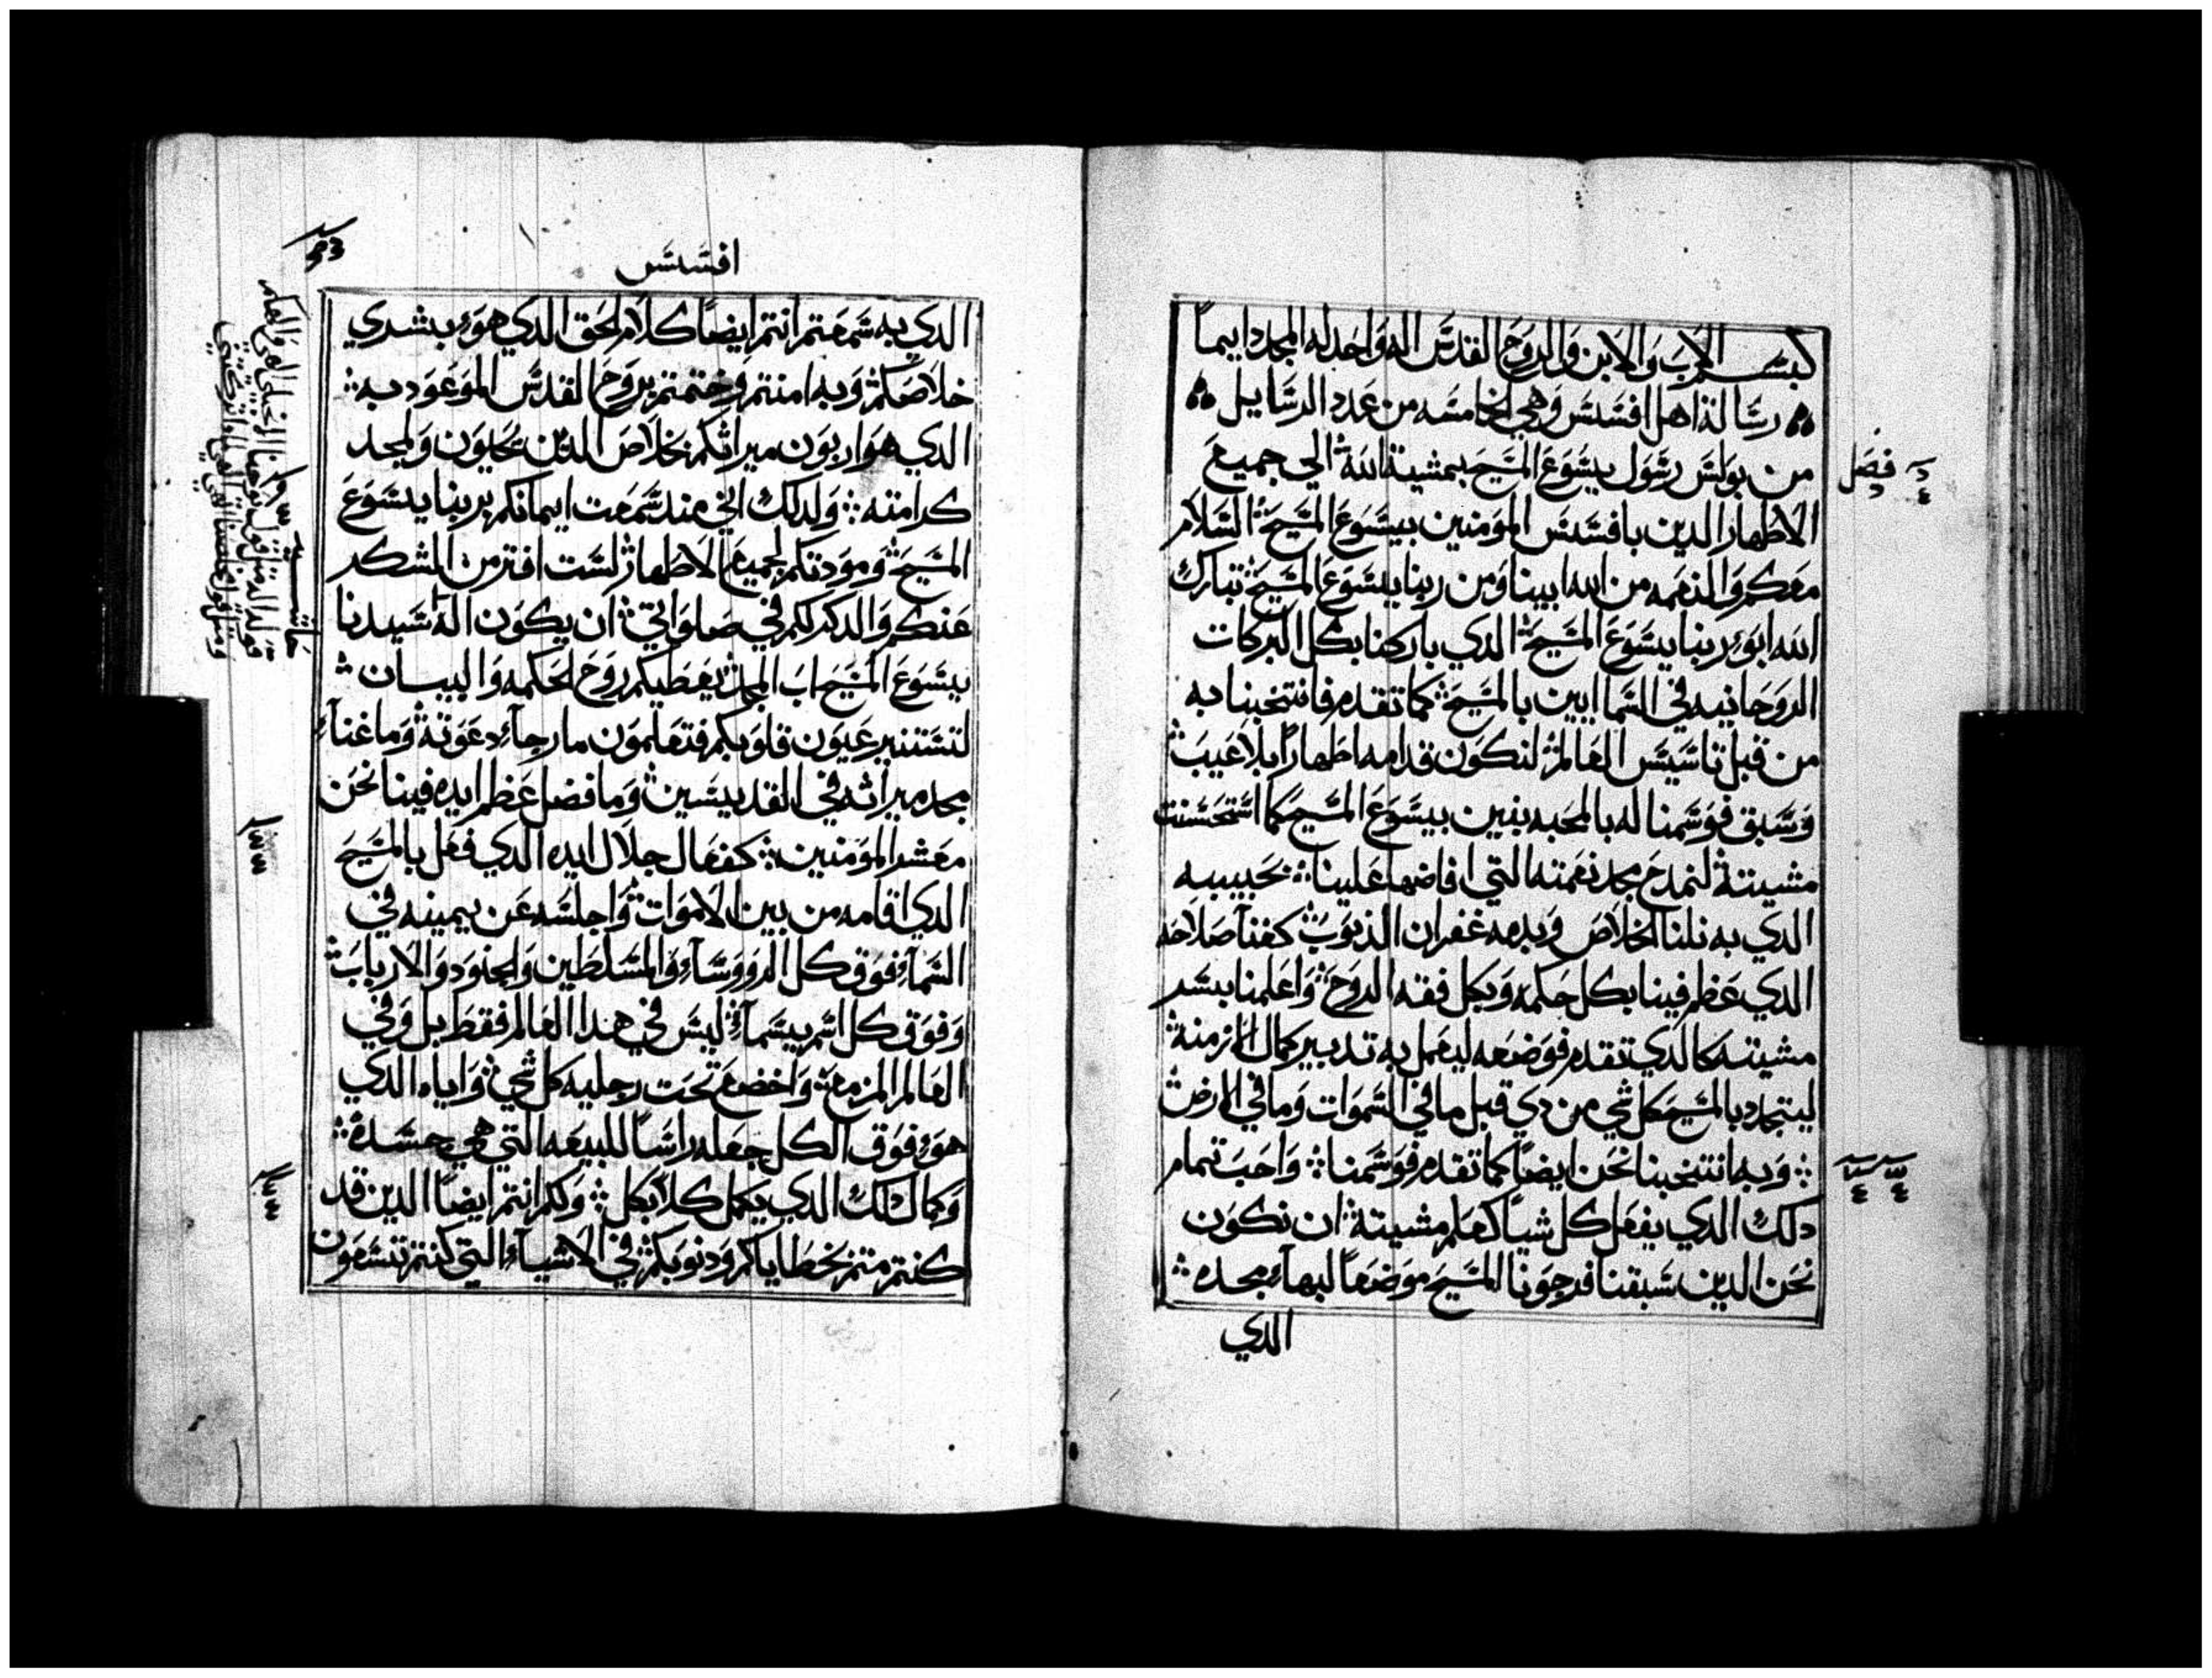 بسم الاب والابن والروح القدس اله واحد له المجد دايماً
رسالة اهل افسس وهي الخامسه من عدد الرسايل
فصل
من بولس رسول يسوع المسيح بمشية الله الي جميع
الاطهار الدين بافسس المومنين بيسوع المسيح السلام
معكم والنعمه من الله ابينا ومن ربنا يسوع المسيح تبارك
الله ابو ربنا يسوع المسيح الدي باركنا بكل البركات
الروحانيه في السماايين بالمسيح كما تقدم فانتخبنا به
من قبل تاسيس العالم لنكون قدامه اطهاراً بلا عيب
وسبق فوسمنا له بالمحبه بنين بيسوع المسيح كما استحسنت
مشيته لنمدح مجد نعمته التي افاضها علينا بحبيبه
الدي به نلنا الخلاص وبدمه غفران الذنوب كغنآ صلاحه
الدي عظم فينا بكل حكمه وبكل فقه الروح واعلمنا بسر
مشيته كالدي تقدم فوضعه ليعمل به تدبير كمال الازمنه
ليتجدد بالمسيح كل شي من دي قبل ما في السموات وما في الارض
وبه انتخبنا نحن ايضاً كما تقدم فوسمنا واحب تمام
دلك الدي يفعل كل شياً كعلم مشيته ان نكون
نحن الدين سبقنا فرجونا المسيح موضعاً لبهآء مجده
الدي
افسس
الدي به سمعتم انتم ايضاً كلام الحق الدي هو بشري
خلاصكم وبه امنتم وختمتم بروح القدس الموعود به
الدي هو اربون ميراثكم بخلاص الدين يحيون ولمجد
كرامته ولدلك اني مند سمعت ايمانكم بربنا يسوع
المسيح ومودتكم لجميع الاطهار لست افتر من الشكر
عنكم والدكر لكم في صلواتي ان يكون اله سيدنا
يسوع المسيح اب المجد يعطيكم روح الحكمه والبيان
لتستنير عيون قلوبكم فتعلمون ما رجآء دعوته وما غنآء
مجد ميراثه في القديسين وما فضل عظم ايده فينا نحن
معشر المومنين كفعال جلال ايده الدي فعل بالمسيح
الدي اقامه من بين الاموات واجلسه عن يمينه في
السمآء فوق كل الروسآء والمسلطين والجنود والارباب
وفوق كل اسم يسمآ ليس في هدا العالم فقط بل وفي
العالم المزمع واخضع تحت رجليه كل شي واياه الدي
هو فوق الكل جعله راساً للبيعه التي هي جسده
وكمال دلك الدي يكمل كلا بكل ولكم انتم ايضاً الدين قد
كنتم متم بخطاياكم ودنوبكم في الاشيآء التي كنتم تسعون